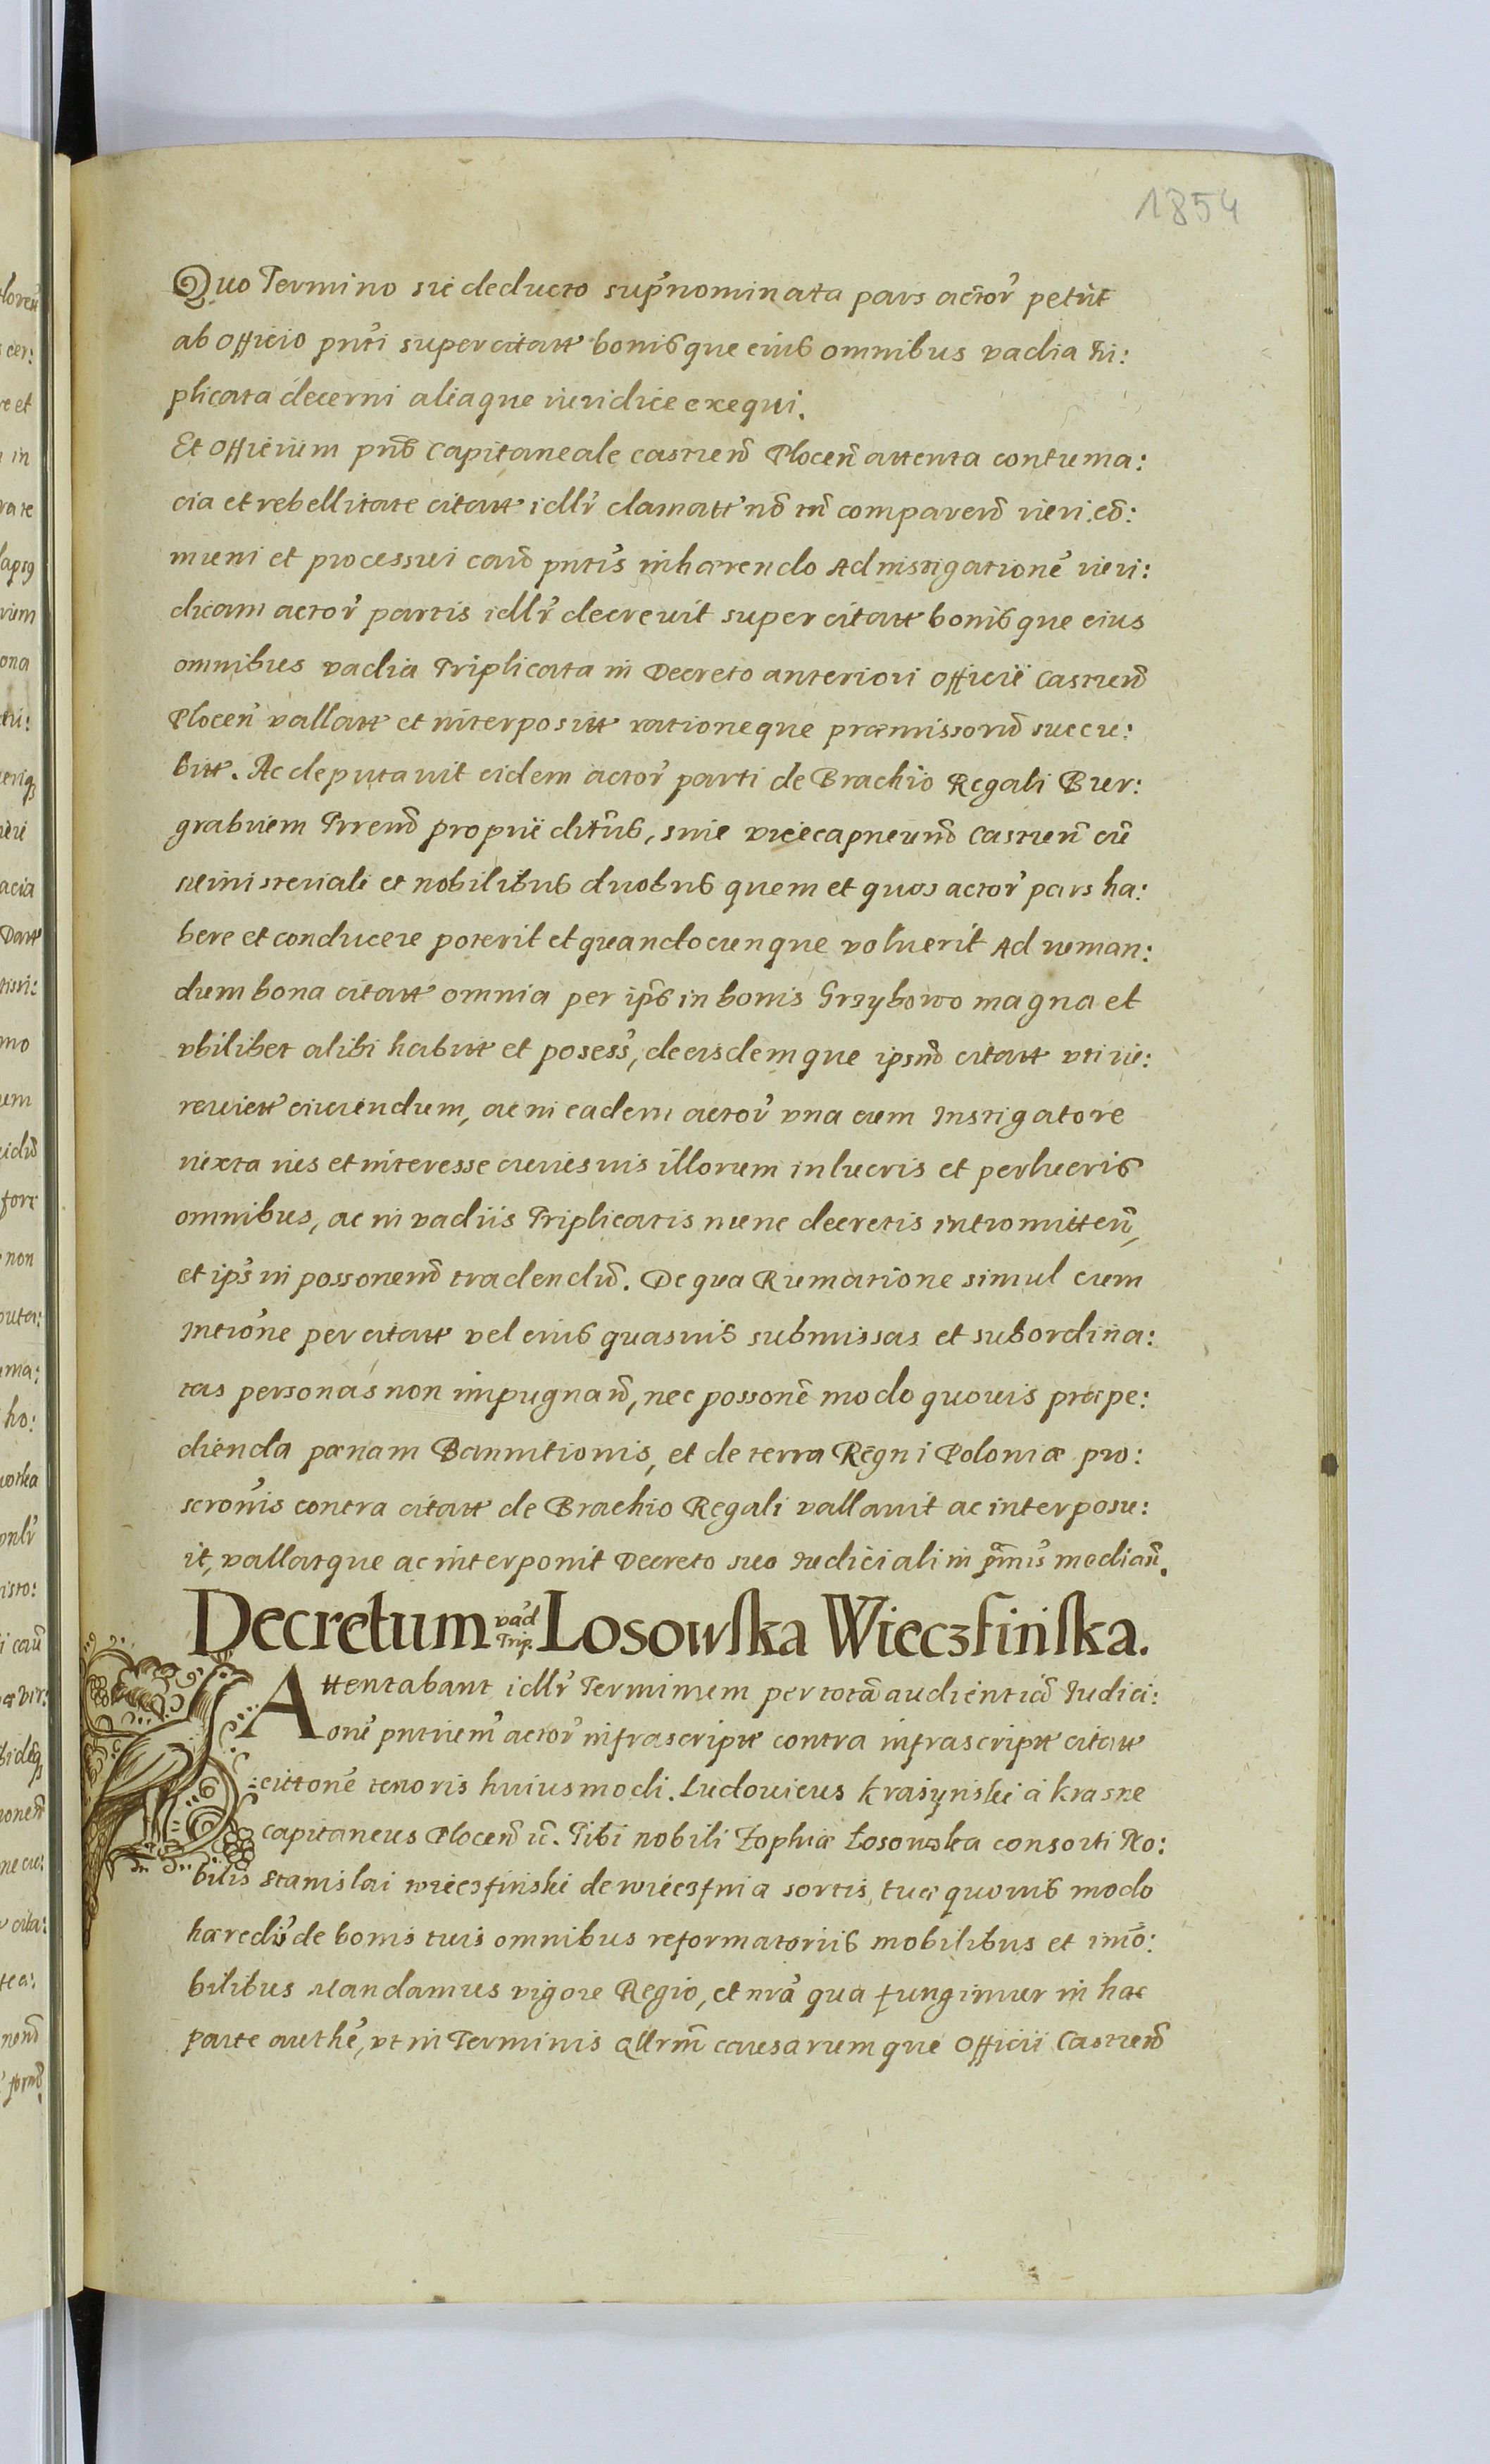 1854
Quo Termino sic deducto supñominata pars actor̃ petiit
ab officio pñti super citatt bonisque eius omnibus vadia tri:
plicata decerni aliaque iuridice exequi.
Et officium pñs Capitaneale castreñ Ploceñ attenta contuma:
cia et rebellitate citatt idllr̃ clamatt nõ tñ compareñ iuri cõ:
muni et processui cauõ pñtis inhærendo Ad instigationẽ iuri:
dicam actor̃ partis idllr̃ decrevit super citatt bonisque eius
omnibus vadia Triplicata in Decreto anteriori officii Castreñ
Ploceñ vallatt et interpositt rationeque præmissorũ succu:
bitt. Ac deputavit eidem actor̃ parti de Brachio Regali Bur:
grabium Trreñ propriẽ dictũs, siue vicecapneuñ Castreñ cũ
ministeriali et nobilibus duobus quem et quos actor̃ pars ha:
bere et conducere poterit et quandocunque voluerit Ad ruman:
dum bona citatt omnia per ip̃s in bonis Grzybowo magna et
vbilibet alibi habitt et posess̃, de eisdemque ipsũ citatt vti iu:
reuictt eiuciendum, ac in eadem actor̃ vna cum Instigatore
iuxta ius et interesse cuiusuis illorum in lucris et perlucris
omnibus, ac in vadiis Triplicatis nunc decretis intromitteñ,
et ip̃s in possonem̃ tradendũ. De qua Rumatione simul cum
Intrõne per citatt vel eius quasuis submissas et subordina:
tas personas non impugnañ, nec possonẽ modo quouis præpe:
dienda pœnam Bannitionis, et de terra Regni Poloniæ pro:
scrõnis contra citatt de Brachio Regali vallauit ac interposu:
it, vallatque ac interponit Decreto suo Iudiciali in p̃mis̃ mediañ.
Decretum vad̃ Trip. Losowska Wieczfińska.
Attentabant idllr̃ Terminum per totã audientiã Iudici:
onẽ pñtiem̃ actor̃ infrascriptt contra infrascriptt citatt
cittonẽ tenoris huiusmodi. Ludouicus krasyński à krasne
capitaneus Ploceñ ic̃. Tibi nobili Zophiæ Łosowska consorti No:
bilis Stanislai wieczfiński de wieczfnia sortis tuæ quouis modo
hæredũ de bonis tuis omnibus reformatoriis mobilibus et im̃o:
bilibus Mandamus vigore Regio, et nrã qua fungimur in hac
parte authẽ, vt in Terminis qllrm̃ causarumque Officii Castreñ